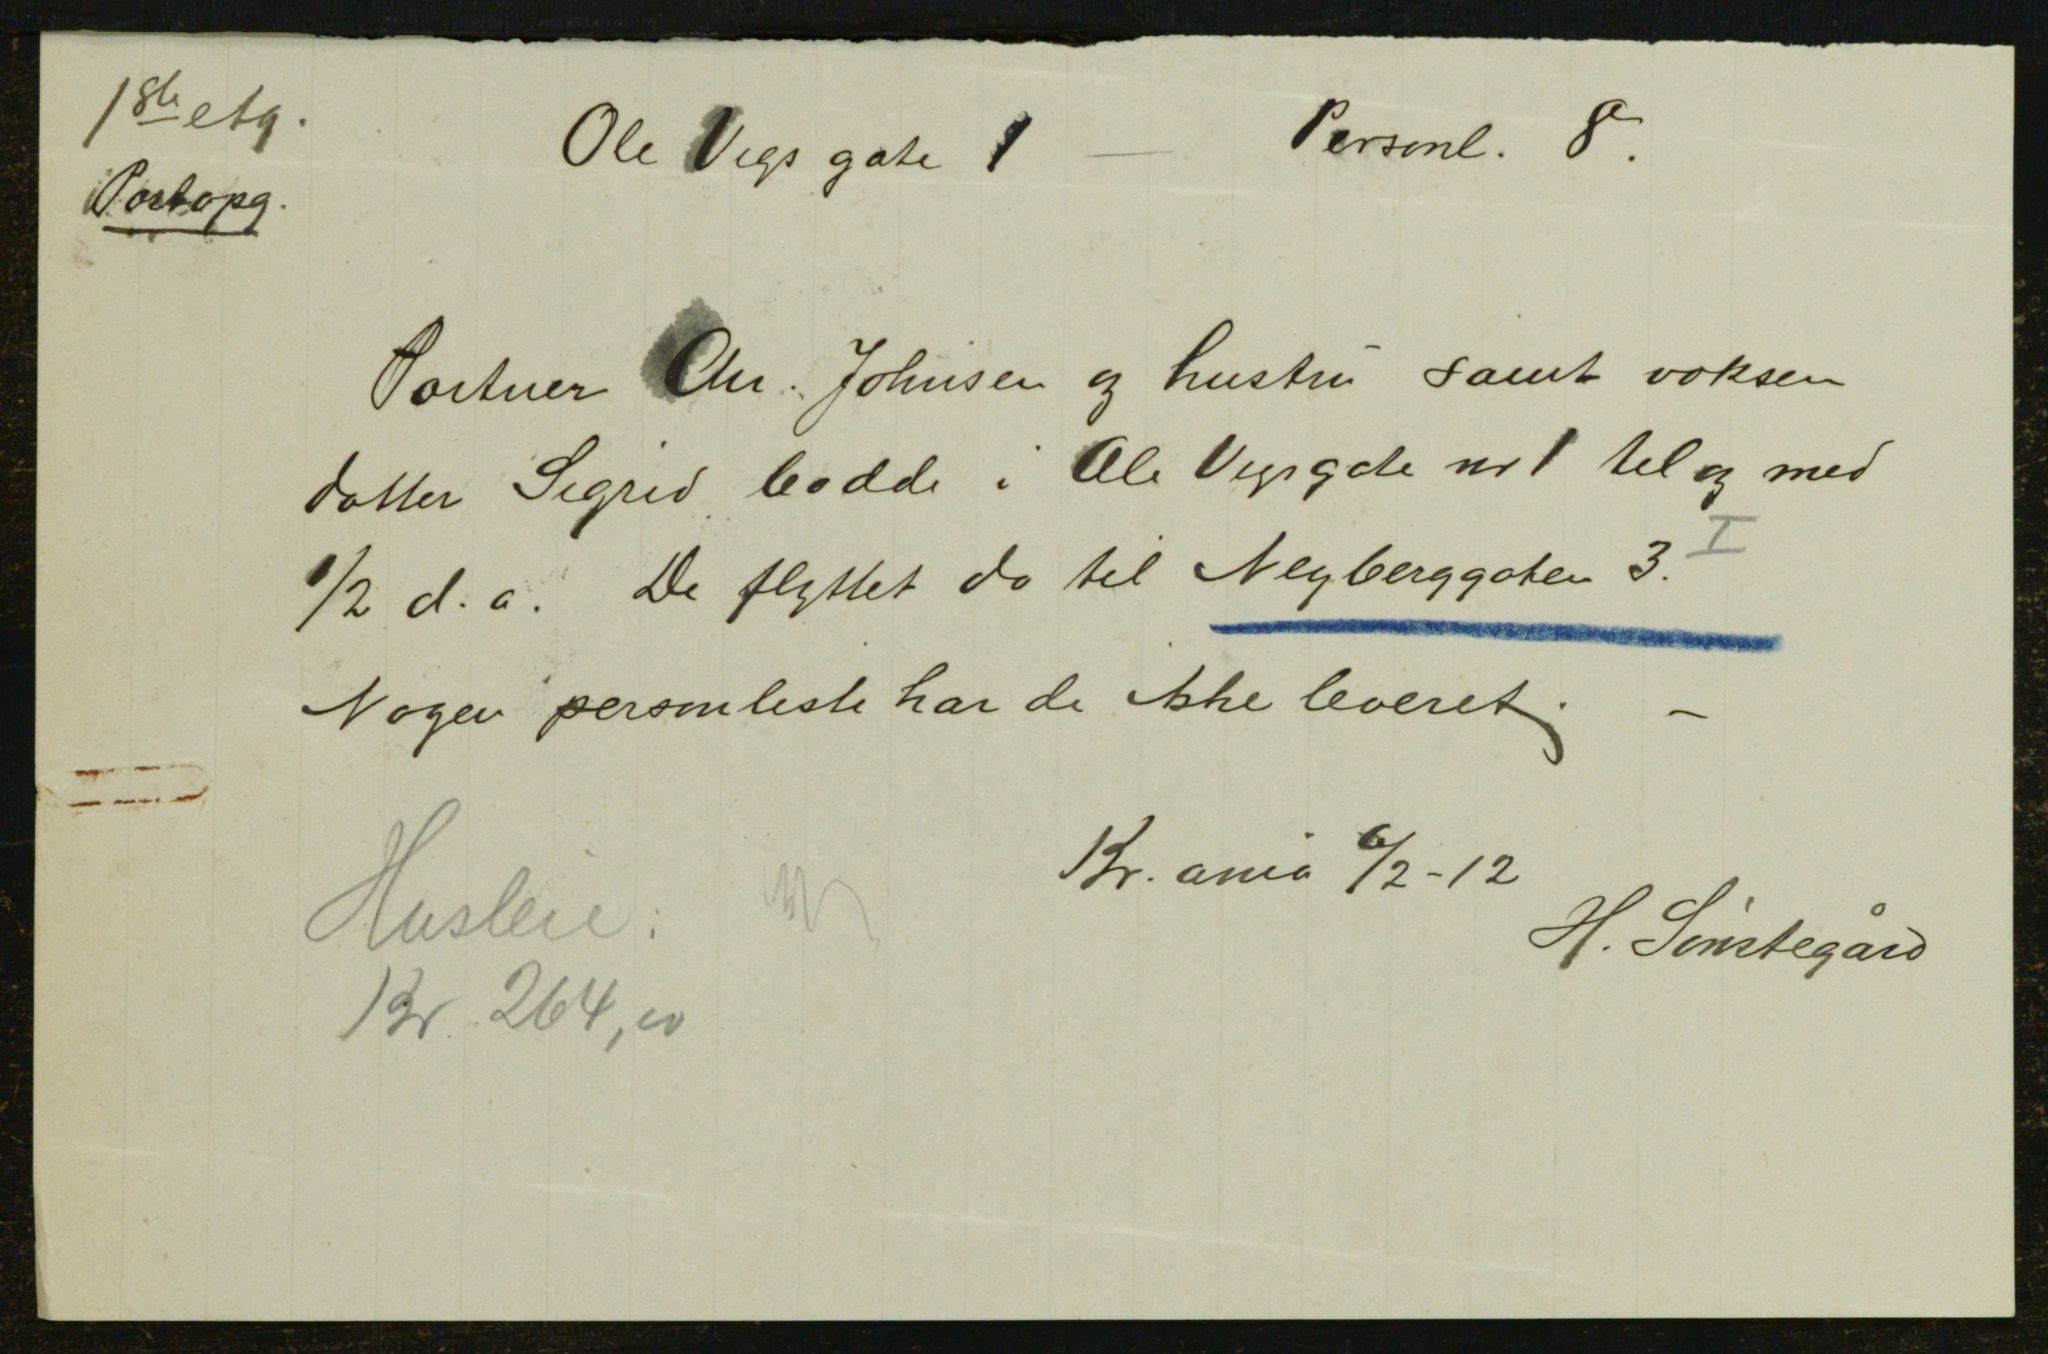 1ste etg.
Portopg.
Ole Vigs gate 1 — Personl. 8.
Portner Chr. Johnsen og hustru samt voksen
datter Sigrid bodde i Ole Vigsgate nr 1 til og med
1/2 d. a. De flyttet da til Neubergggaten 3. I
Nogen personliste har de ikke leveret. –
Kr. ania 6/2-12
H. Sønstegård
Husleie:
Kr. 264,00